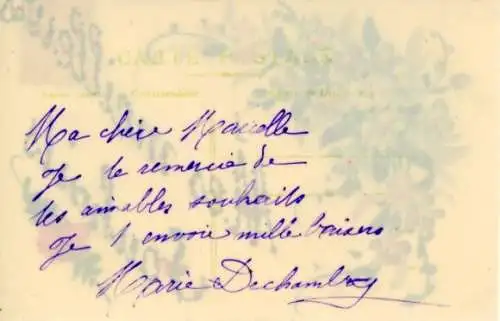 CARTE POSTALE
Ma chère Marcelle
Je te remercie de
tes aimables souhaits
Je t envoie mille baisers
Marie Dechambry